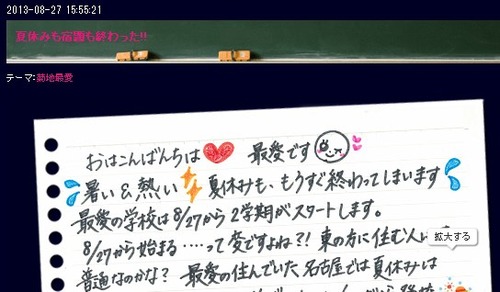 2013-08-27 15:55:21
夏休みも宿題も終わった!!
テーマ:菊地最愛
おはこんばんちは 最愛です
暑い&熱い 夏休みも、もうすぐ終わってしまいます
最愛の学校は8/27から2学期がスタートします。
8/27から始まる……って変ですよね?! 東の方に住む人
拡大する
普通なのかな? 最愛の住んでいた名古屋では夏休みは